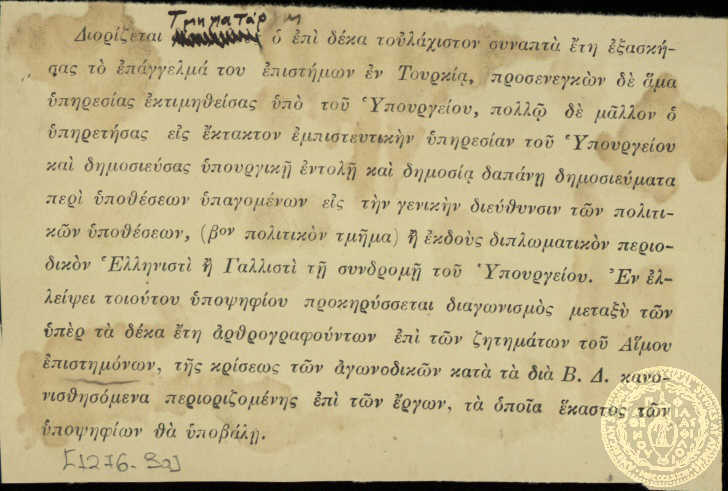 Τμηματάρ
Διορίζεται ὁ ἐπὶ δέκα τοὐλάχιστον συναπτὰ ἔτη ἐξασκή-
σας τὸ ἐπάγγελμά του ἐπιστήμων ἐν Τουρκίᾳ, προσενεγκὼν δὲ ἅμα
ὑπηρεσίας ἐκτιμηθείσας ὑπὸ τοῦ Ὑπουργείου, πολλῷ δὲ μᾶλλον ὁ
ὑπηρετήσας εἰς ἔκτακτον ἐμπιστευτικὴν ὑπηρεσίαν τοῦ Ὑπουργείου
καὶ δημοσιεύσας ὑπουργικῇ ἐντολῇ καὶ δημοσίᾳ δαπάνῃ δημοσιεύματα
περὶ ὑποθέσεων ὑπαγομένων εἰς τὴν γενικὴν διεύθυνσιν τῶν πολιτι-
κῶν ὑποθέσεων, (βον πολιτικὸν τμῆμα) ἢ ἐκδοὺς διπλωματικὸν περιο-
δικὸν Ἑλληνιστὶ ἢ Γαλλιστὶ τῇ συνδρομῇ τοῦ Ὑπουργείου. Ἐν ἐλ-
λείψει τοιούτου ὑποψηφίου προκηρύσσεται διαγωνισμὸς μεταξὺ τῶν
ὑπὲρ τὰ δέκα ἔτη ἀρθρογραφούντων ἐπὶ τῶν ζητημάτων τοῦ Αἵμου
ἐπιστημόνων, τῆς κρίσεως τῶν ἀγωνοδικῶν κατὰ τὰ διὰ Β. Δ. κανο-
νισθησόμενα περιοριζομένης ἐπὶ τῶν ἔργων, τὰ ὁποῖα ἕκαστος τῶν
ὑποψηφίων θὰ ὑποβάλῃ.
[1276-9α]